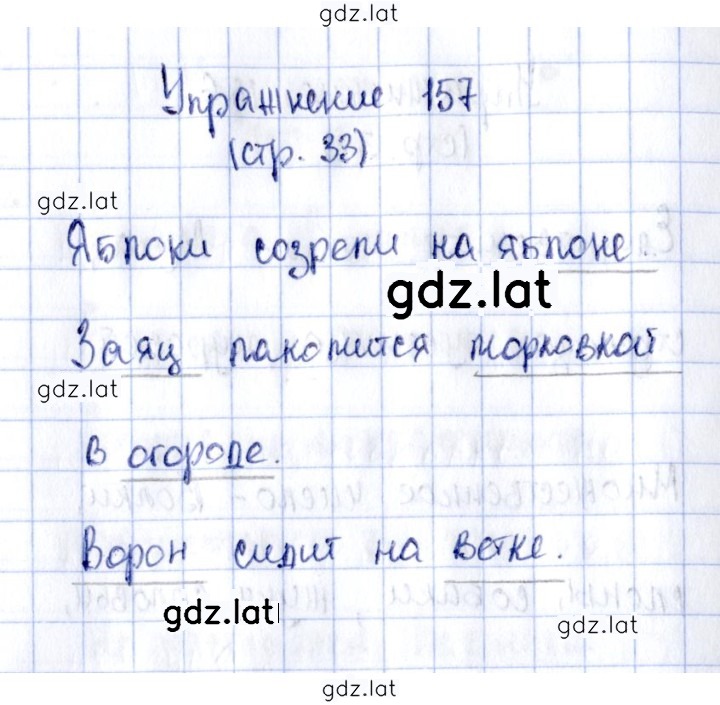 gdz.lat
Упражнение 157
(стр. 33)
gdz.lat
Яблоки созрели на яблоне.
gdz.lat
Заяц лакомится морковкой
gdz.lat
в огороде.
Ворон сидит на ветке.
gdz.lat
gdz.lat
gdz.lat